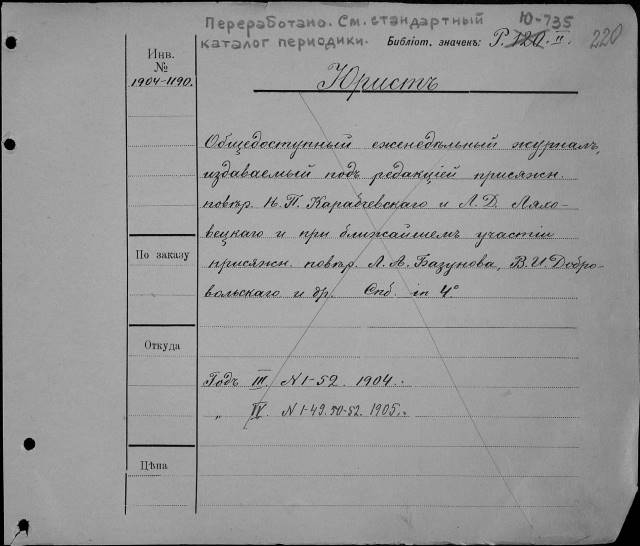 Переработано. См. стандартный Ю-735
каталог периодики. Библіот. значекъ: P.120.II. 220
Инв.
№
1904-1190.
Юристъ
Общедоступный еженедѣльный журналъ,
издаваемый подъ редакціей присяжн.
повѣр. Н. П. Карабчевскаго и Л. Д. Ляхо-
вецкаго и при ближайшемъ участіи
присяжн. повѣр. Л. А. Базунова, В. И. Добро-
вольскаго и др. Спб. in 4°.
По заказу
Откуда
Годъ III. N 1-52. 1904.
" IV. N 1-49. 50-52. 1905.
Цѣна